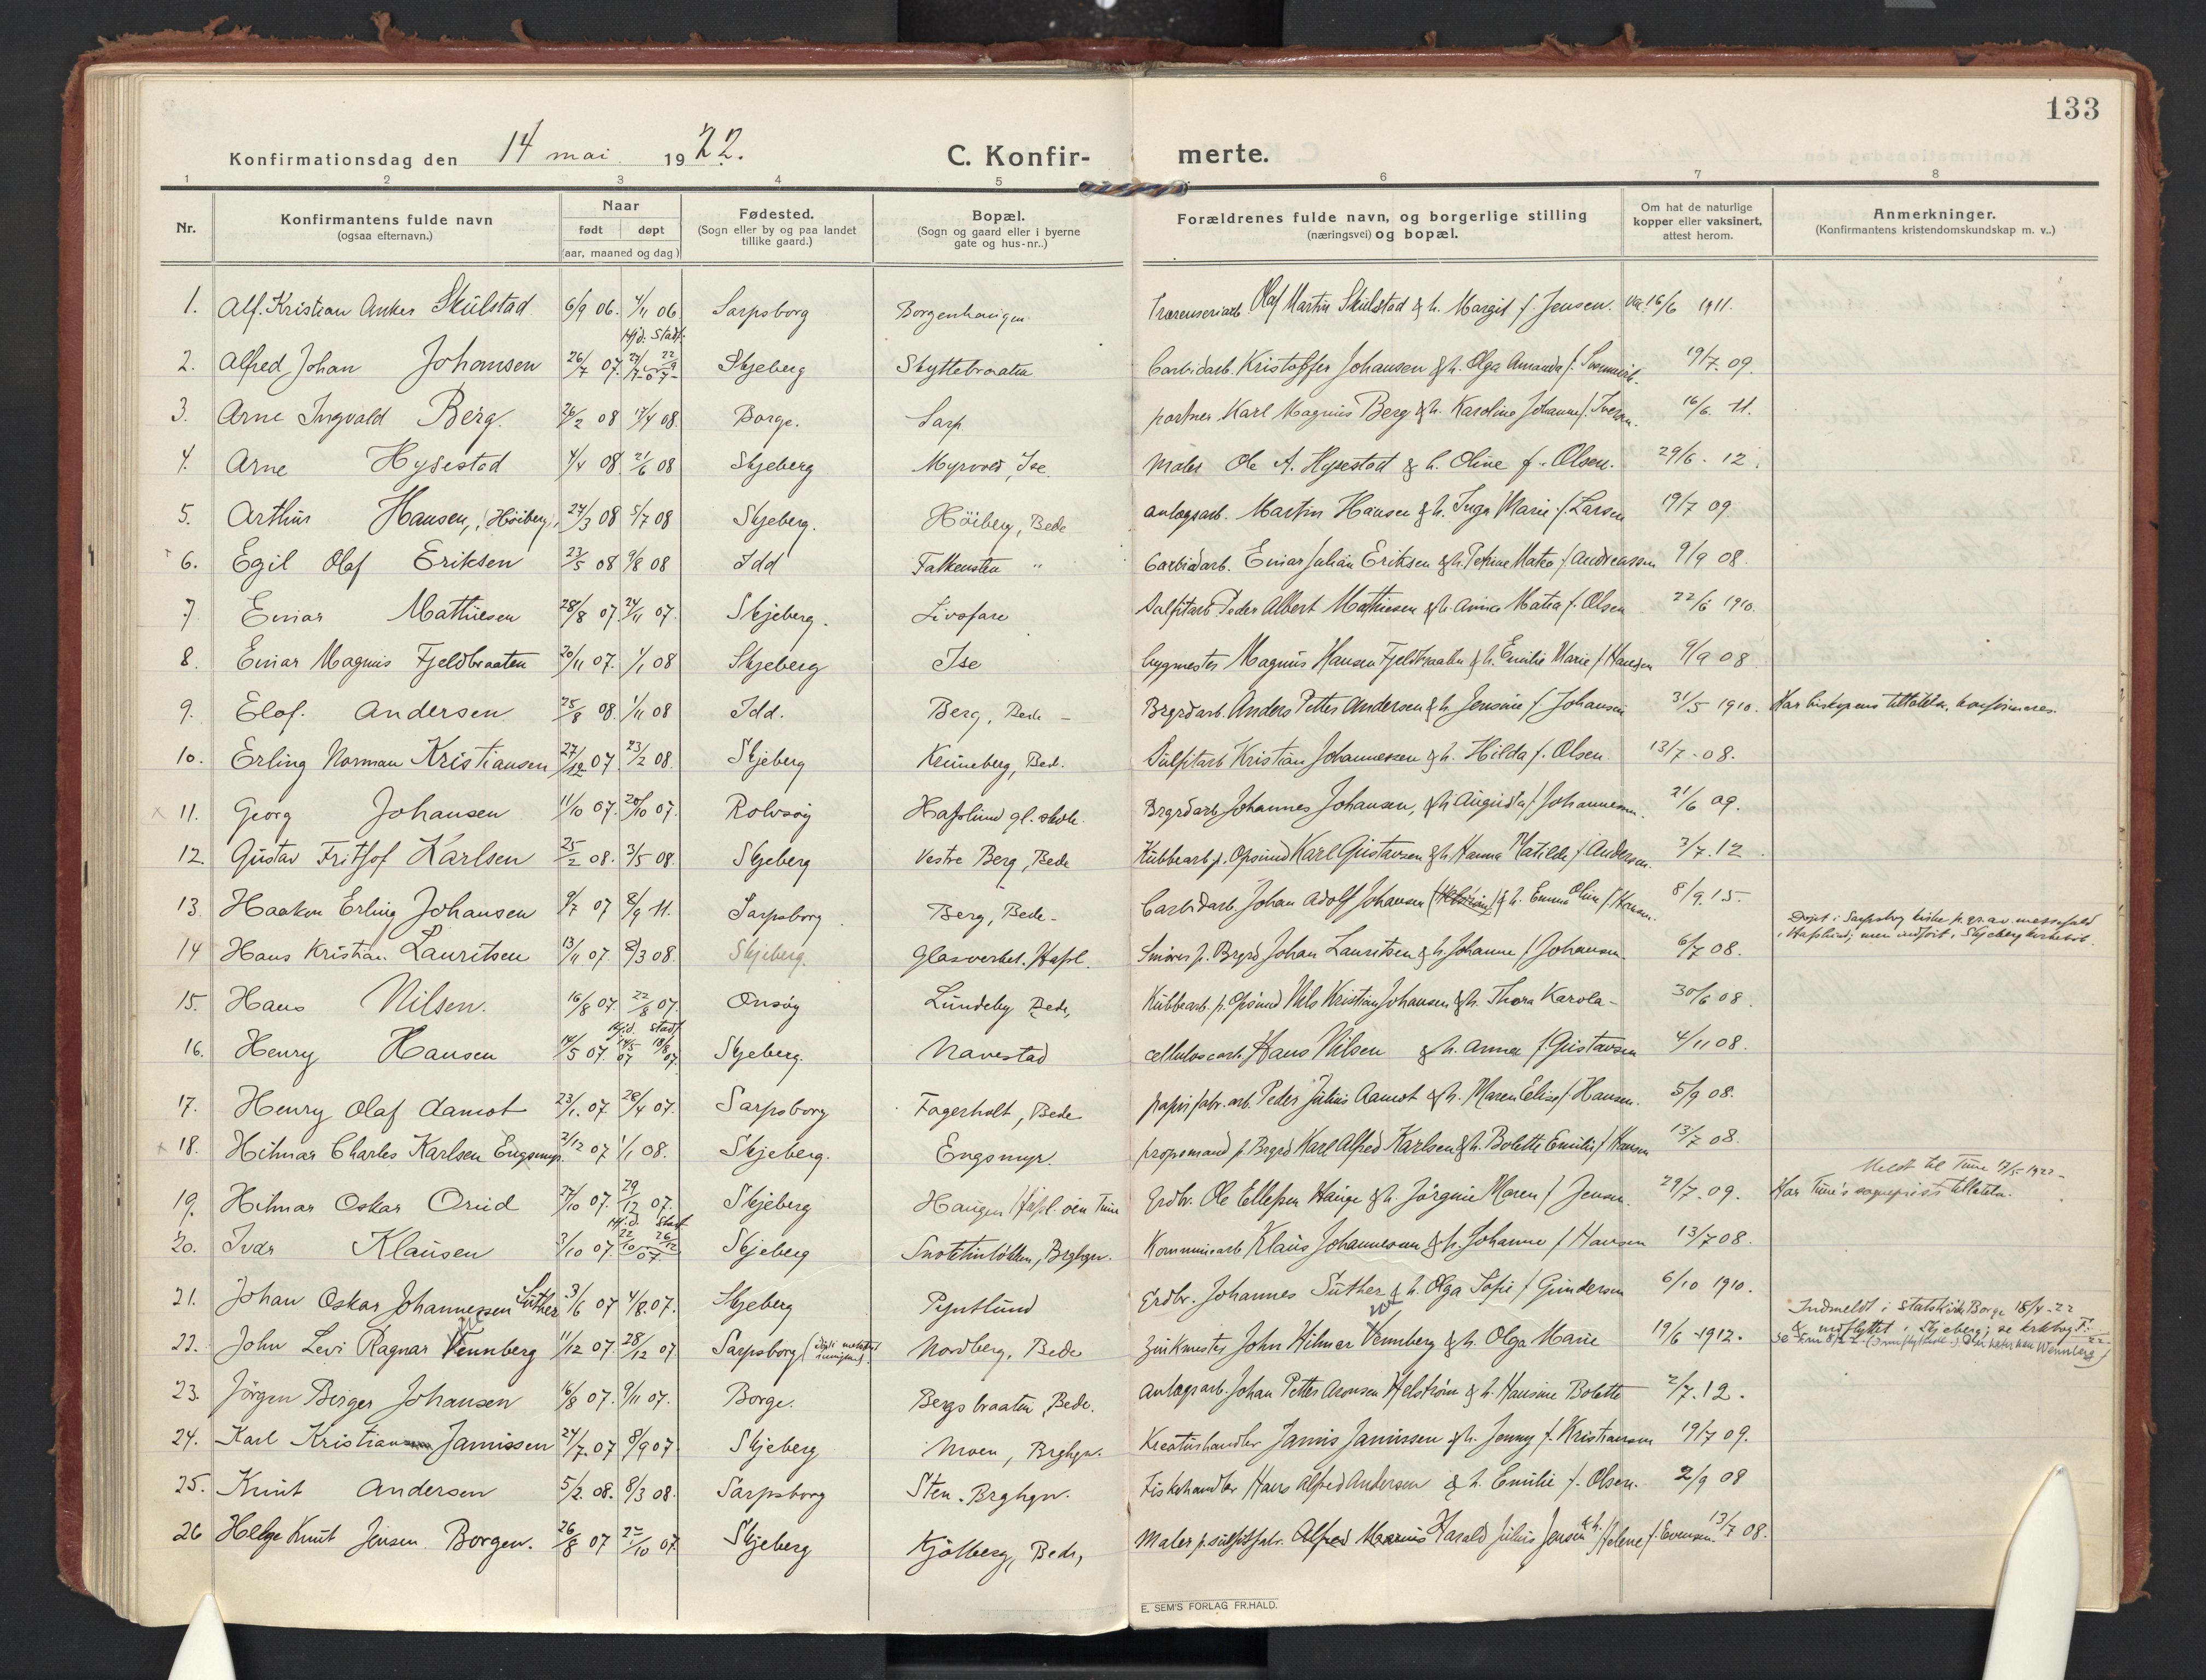 133
Konfirmationsdag den 14 mai 1922. C. Konfir- merte.
1 2 3 4 5 6 7 8
Nr. Konfirmantens fulde navn (ogsaa efternavn.) Naar født døpt (aar, maaned og dag) Fødested. (Sogn eller by og paa landet tillike gaard.) Bopæl. (Sogn og gaard eller i byerne gate og hus-nr..) Forældrenes fulde navn, og borgerlige stilling (næringsvei) og bopæl. Om hat de naturlige kopper eller vaksinert, attest herom. Anmerkninger. (Konfirmantens kristendomskundskap m. v..)
1. Alf. Kristian Anker Skulstad 6/9 06. 4/11 06 Sarpsborg Borgenhaugen Olaf Martin Skulstad & h. Margit f. Jensen. 16/6 1911.
Hjd. Stadf.
2. Alfred Johan Johansen 26/7 07. Skjeberg Skyttebraaten Carbidarb. Kristoffer Johansen & h. Olga Amanda f. 19/7. 09.
3. Arne Ingvald Berg. 26/2 08 17/4 08. Borge. Sarp portner Karl Magnus Berg & h. Karoline Johanne f. Iversen. 16/6. 11.
4. Arne Hysestad 4/4 08. 21/6 08 Skjeberg Myrvold, Ise. Maler Ole A. Hysestad & h. Oline f. Olsen. 29/6. 12.
5. Arthur Hansen, (Höiberg) 27/3 08 5/7 08 Skjeberg. Höiberg, Bede anlægsarb. Martin Hansen & h. Inga Marie f. Larsen 19/7 09
6. Egil Olaf Eriksen 23/5 08 9/8 08 Idd Falkensten " Carbidarb. Einar Julian Eriksen & h. Petrine Matea f. Andreassen 9/9 08.
7 Einar Mathiesen 28/8 07 24/11 07. Skjeberg. Livofare Sulfitarb Peder Albert Mathiesen & h. Anna Matea f. Olsen 22/6 1910.
8. Einar Magnus Fjeldbraaten 20/11 07. 1/1 08 Skjeberg Ise bygmester Magnus Hansen Fjeldbraaten & h. Emilie Marie f. Hansen 9/9 08
9. Elof. Andersen 25/8 08. 1/11 08 Idd. Berg, Bede - Brgrdarb. Anders Petter Andersen & h. Jensine f. Johansen 31/5 1910. Har biskopens tillatelse, konfirmeres.
10. Erling Norman Kristiansen 27/12 07. 23/2 08. Skjeberg Kruneberg, Bed. Sulfitarb Kristian Johannessen & h. Hilda f. Olsen. 13/7-08.
11. Georg Johansen 11/10 07. 20/10 07. Rolvsöy Hafslund gl. skole Brgrdarb Johannes Johansen, & h. Augusta f. Johannessen. 21/6 09.
12. Gustav Fritjof Karlsen 25/2 08. 3/5 08. Skjeberg Vestre Berg, Bede Kubbearb. p. Opsund Karl Gustavsen & h. Hanna Matilde f. Andersen. 3/7. 12
13. Haakon Erling Johansen 9/7 07 8/9 11. Sarpsborg Berg, Bede - Carbidarb Johan Adolf Johansen & h. Emma Oline f. 8/9. 15.
Döpt i Sarpsborg kirke p. gr. av messefald
i Hafslund; men indfört i Skjeberg kirkebok.
14 Hans Kristian. Lauritsen 13/11 07. 8/3 08. Skjeberg. Glasverket. Hafsl. Smörer p. Brgrd Johan Lauritsen & h. Johanne f. Johansen. 6/7 08.
15. Hans Nilsen. 16/8 07. 22/8 07. Onsöy Lundeby Bede, Kubbearb. p. Opsund Nils Kristian Johansen & h. Thora Karola - 30/6 08.
Hjd. Stadf.
16. Henry Hansen 14/5 07. 14/5 07 18/8 07. Skjeberg. Navestad cellulosearb. Hans Nilsen & h. Anna f. Gustavsen 4/11 08.
17. Henry Olaf Aamot 23/1. 07 28/4 07. Sarpsborg Fagerholt, Bede papirfabr. arb. Peder Julius Aamot & h. Maren Elise f. Hansen. 5/9 08.
18. Hilmar Charles Karlsen Engsmyr. 2/12 07 1/1 08. Skjeberg. Engsmyr. propsmand p Brgrd Karl Alfred Karlsen & h. Bolette Emilie f. Hansen 13/7 08.
Meldt til Tune 17/5 1922-
19. Hilmar Oskar Orud 27/10 07. 29/12 07. Skjeberg Haugen Tune Grdbr. Ole Ellefsen Hauge & h. Jörgine Maren f. Jensen. 29/7. 09. Har Tune's sogneprests tillatelse.
Hjd. Stadf.
20. Ivar Klausen 3/10 07. 22/10 07. 26/12 Skjeberg Brghgn. Kommunearb Klaus Johannessen & h. Johanne f. Hansen 13/7 08.
21. Johan Oskar Johannessen Suther 3/6 07 4/8. 07. Skjeberg Pyntlund Grdbr. Johannes Suther & h. Olga Sofie f. Gundersen 6/10 1910.
Indmeldt i statskirken Borge 18/4-22
& indflyttet i Skjeberg; se krkbog F.
22. John Levi Ragnar Vennberg 11/12 07. 28/12 07. Sarpsborg Nordberg, Bede John Hilmer Vennberg & h. Olga Marie 19/6 -1912.
23. Jörgen Berger Johansen 16/8 07. 9/11 07. Borge. Bergsbraaten, Bede. Anlægsarb. Johan Petter Aronsen Helström & h. Hansine Bolette 2/7. 12.
24. Karl Kristian Janissen 24/7. 07 8/9 07 Skjeberg Moen, Brghgn. Kreaturhandler Janis Janissen & h. Jenny f. Kristiansen 19/7 09.
25. Knut Andersen 5/2. 08. 8/3 08. Sarpsborg Sten. Brghgn. Fiskehandler Hans Alfred Andersen & h. Emilie f. Olsen. 2/9 08
26 Helge Knut Jensen. Borgen. 26/8 07 27/10 07. Skjeberg Kjölberg, Bede, Maler p. sulfitfabr. Alfred Harald Julius Jensen & h. Helene f. Evensen. 13/7 08.
E. SEM'S FORLAG FR.HALD.